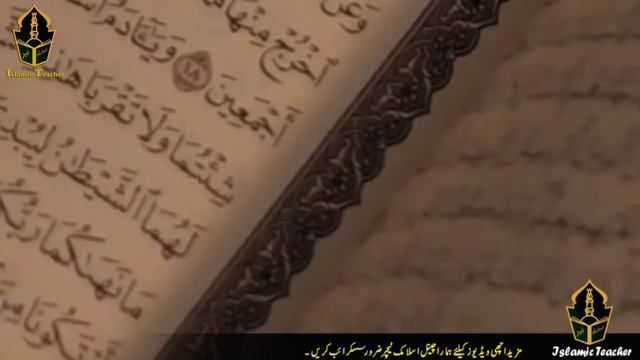 Islamic Teacher
وَعَنْ
ٱخْرُجْ مِنْهَا
أَجْمَعِينَ ١٨ وَيَٰٓـَٔادَمُ
شِئْتُمَا وَلَا تَقْرَبَا هَٰذِ
لَهُمَا ٱلشَّيْطَٰنُ لِيُبْدِ
مَا نَهَىٰكُمَا رَبُّكُ
تَكُونَا مِنَ
مزید اچھی ویڈیوز کیلئے ہمارا چینل اسلامک ٹیچر ضرور سبسکرائب کریں۔
Islamic Teacher